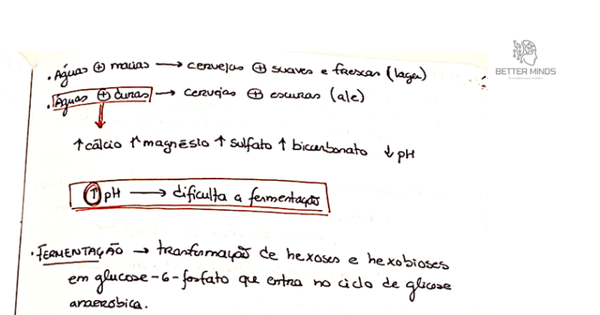 BETTER MINDS
. Águas ⊕ macias → cervejas ⊕ suaves e frescas (lager)
. Águas ⊕ duras → cervejas ⊕ escuras (ale)
↑ cálcio ↑ magnésio ↑ sulfato ↑ bicarbonato ↓ pH
↑ pH → dificulta a fermentação
. FERMENTAÇÃO → transformação de hexoses e hexobioses
em glucose-6-fosfato que entra no ciclo de glicose
anaeróbica.